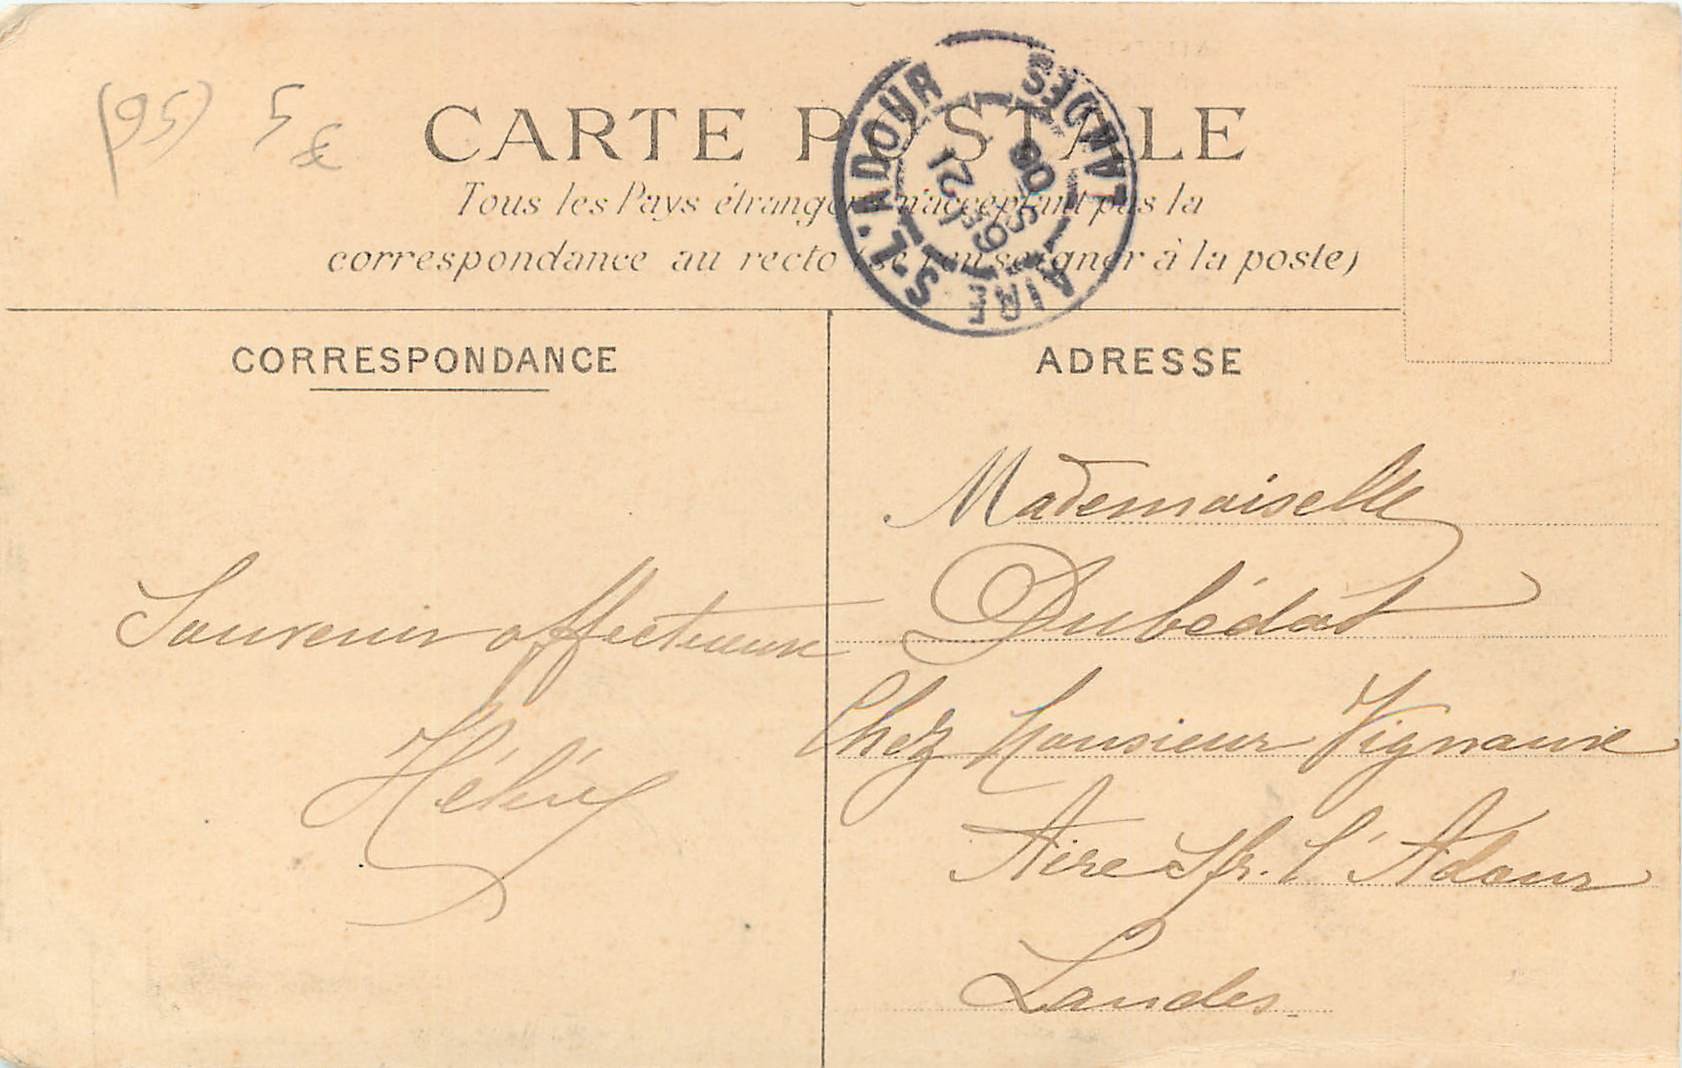 (95) 5 €
CARTE POSTALE
Tous les Pays étrangers n'acceptent pas la
correspondance au recto (se renseigner à la poste)
AIRE S. L'ADOUR LANDES
21
06
CORRESPONDANCE
ADRESSE
Souvenir affectueux
Mademoiselle
Dubédat
Chez Monsieur Vignaux
Aire s/r. l'Adour
Landes